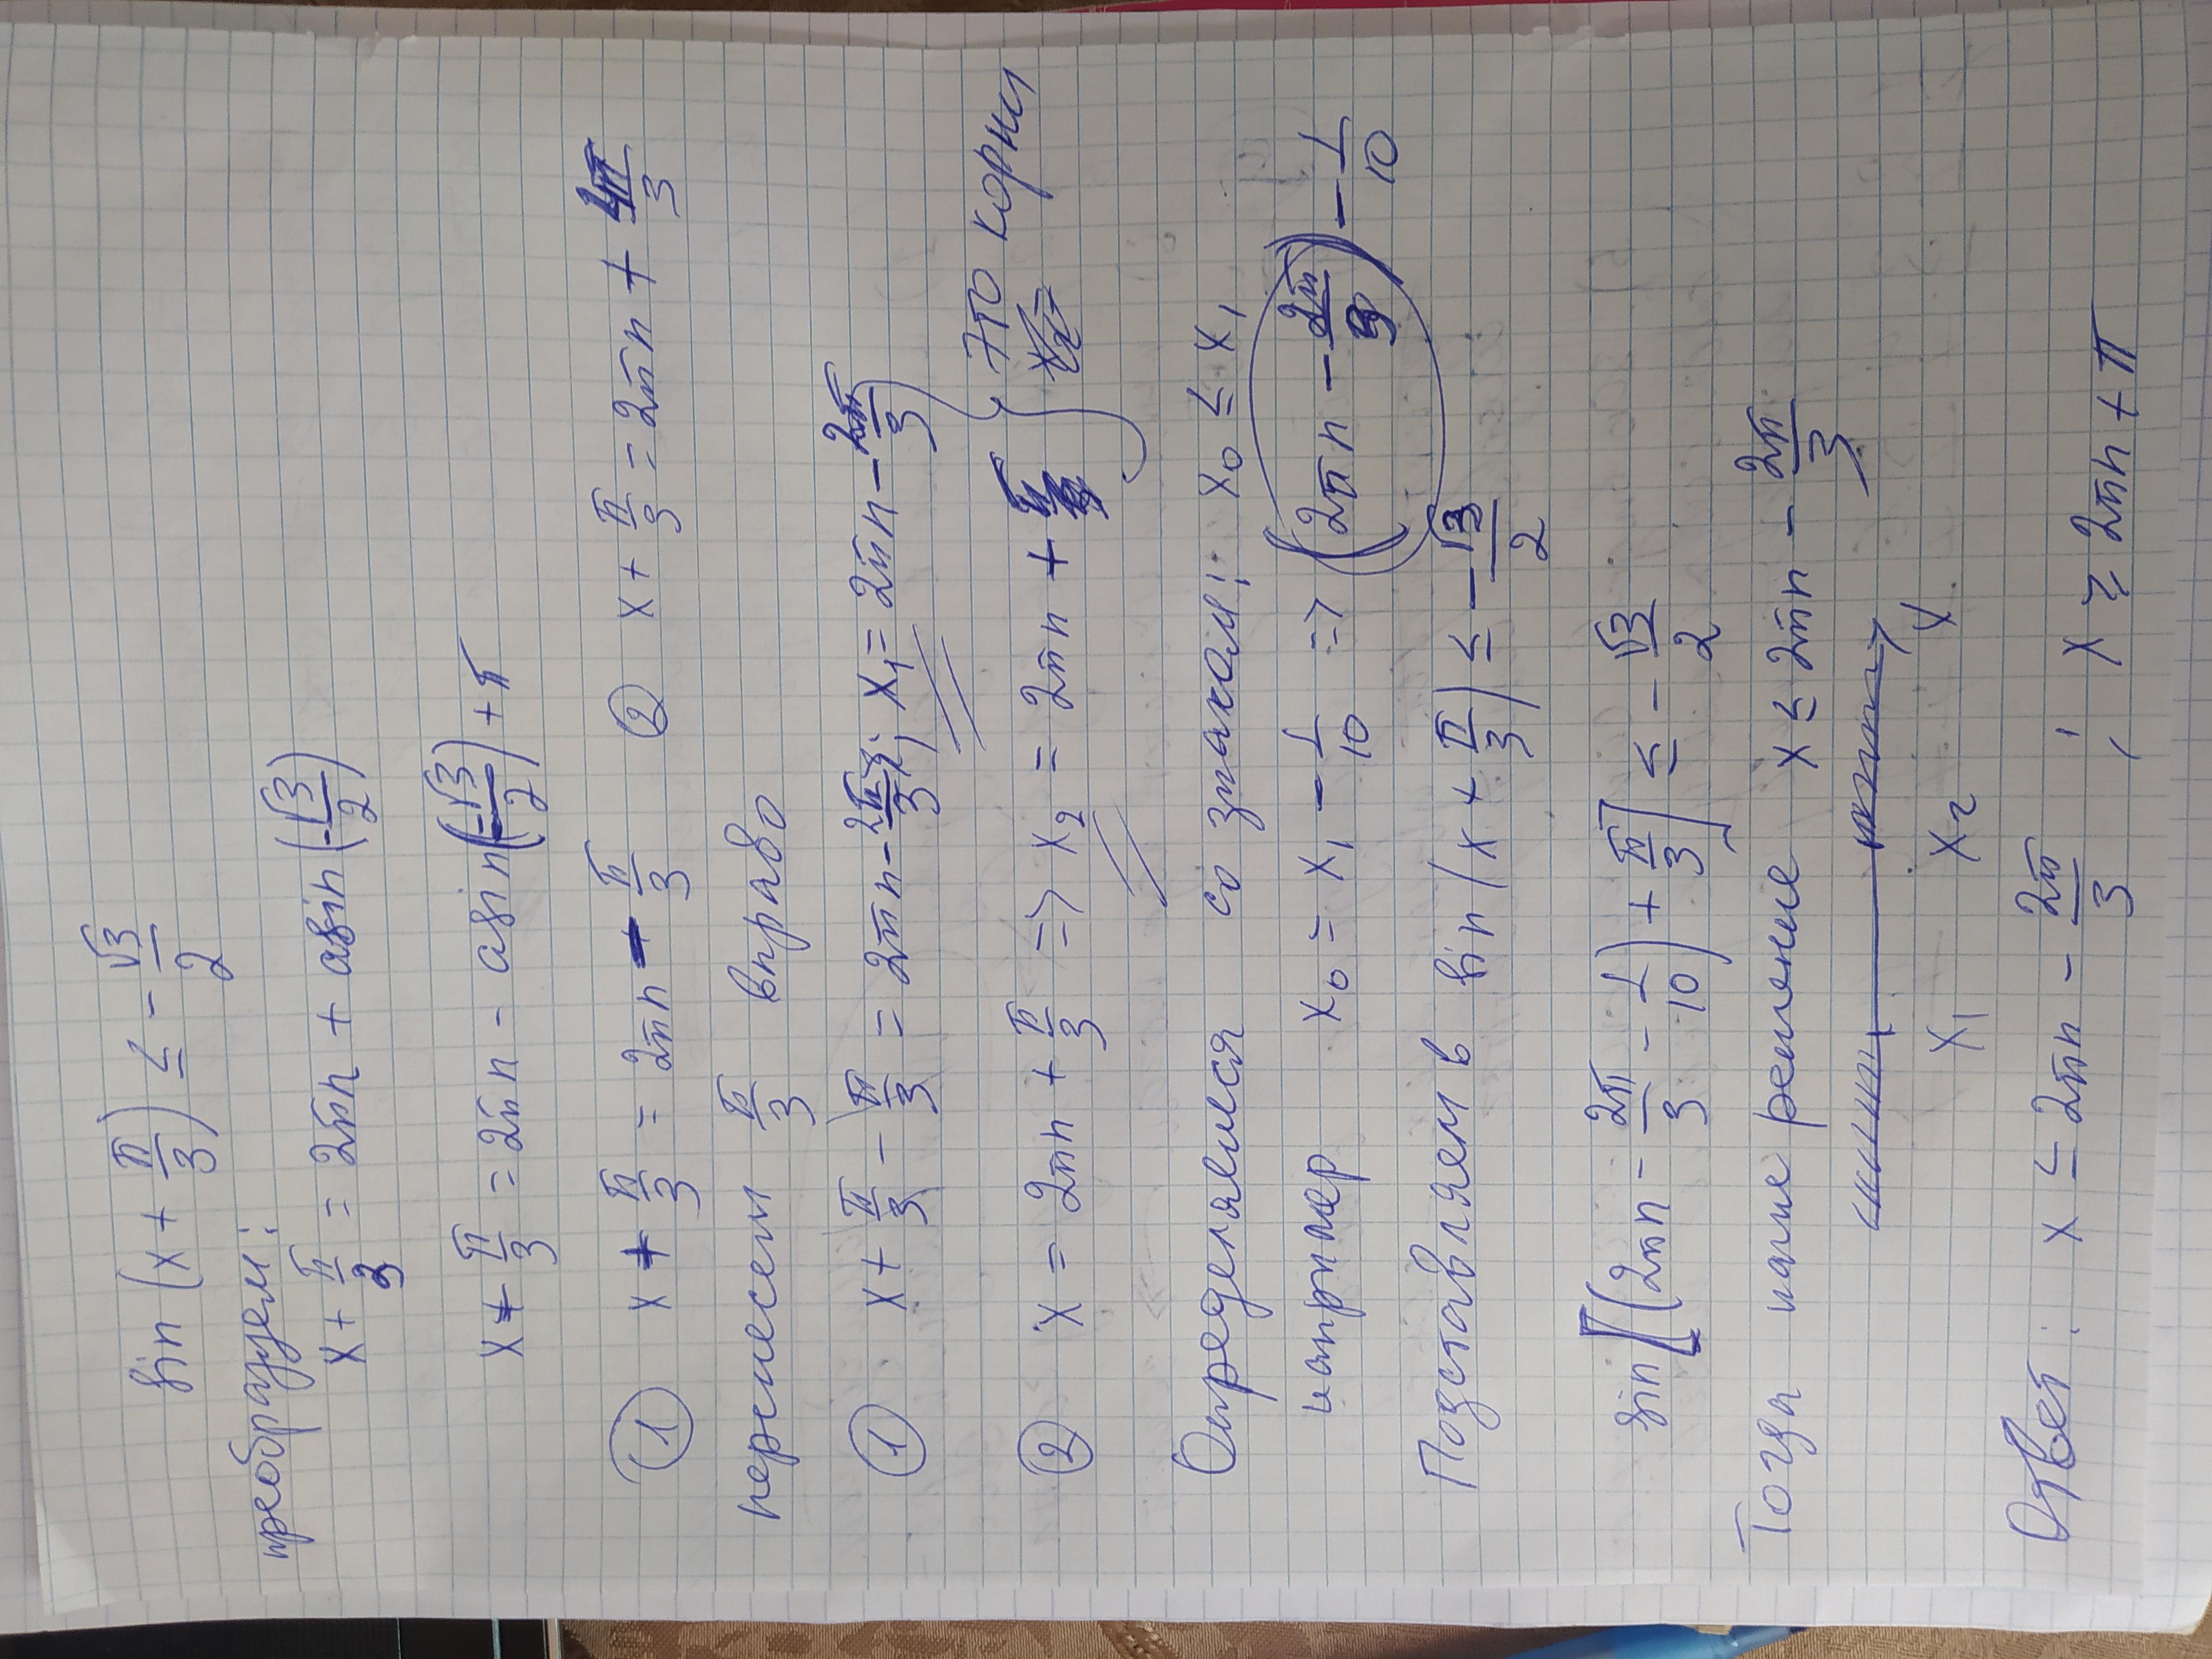 sin (x + π/3) ≤ - √3/2
преобразуем:
x + π/3 = 2πn + asin (-√3/2)
x + π/3 = 2πn - asin (-√3/2) + π
① x + π/3 = 2πn - π/3 ② x + π/3 = 2πn + 4π/3
перенесем π/3 вправо
① x + π/3 - π/3 = 2πn - 2π/3; x₁ = 2πn - 2π/3
② x = 2πn + π/3 => x₂ = 2πn + π } это корни
Определяемся со знаком: x₀ ≤ x₁
например x₀ = x₁ - 1/10 => (2πn - 2π/3) - 1/10
Подставляем в sin (x + π/3) ≤ - √3/2
sin [(2πn - 2π/3 - 1/10) + π/3] ≤ - √3/2
Тогда наше решение x ≤ 2πn - 2π/3
x₁ x₂ x
Ответ: x ≤ 2πn - 2π/3, x ≥ 2πn + π